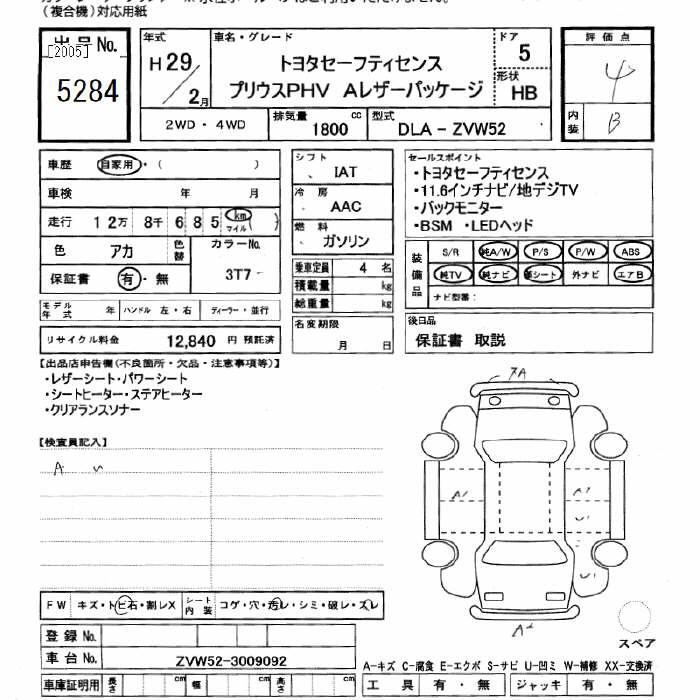 (複合機)対応用紙
出品No.
[2005]
5284
年式
H29/2月
車名・グレード
トヨタセーフティセンス
プリウスPHV Aレザーパッケージ
ドア
5
形状
HB
評価点
4
内装
B
2WD・4WD
排気量
1800 cc
型式
DLA-ZVW52
車歴 自家用・( )
車検 年 月
走行 12万 8千 685 km マイル
色 アカ 色替 カラーNo. 3T7
保証書 有・無
モデル年式 年 ハンドル 左・右 ディーラー・並行
リサイクル料金 12,840 円 預託済
シフト
IAT
冷房
AAC
燃料
ガソリン
乗車定員 4 名
積載量 kg
総重量 kg
名変期限
月 日
セールスポイント
・トヨタセーフティセンス
・11.6インチナビ/地デジTV
・バックモニター
・BSM ・LEDヘッド
装備品
S/R 純A/W P/S P/W ABS
純TV 純ナビ 革シート 外ナビ エアB
ナビ型番:
後日品
保証書 取説
【出品店申告欄(不良箇所・欠品・注意事項等)】
・レザーシート・パワーシート
・シートヒーター・ステアヒーター
・クリアランスソナー
【検査員記入】
A U
FW キズ・トビ石・割レX シート内装 コゲ・穴・汚レ・シミ・破レ・スレ
登録No.
車台No. ZVW52-3009092
車庫証明用 長さ cm 幅 cm 高さ cm
A1
U1
A2
スペア
A-キズ C-腐食 E-エクボ S-サビ U-凹ミ W-補修 XX-交換済
工具 有・無 ジャッキ 有・無